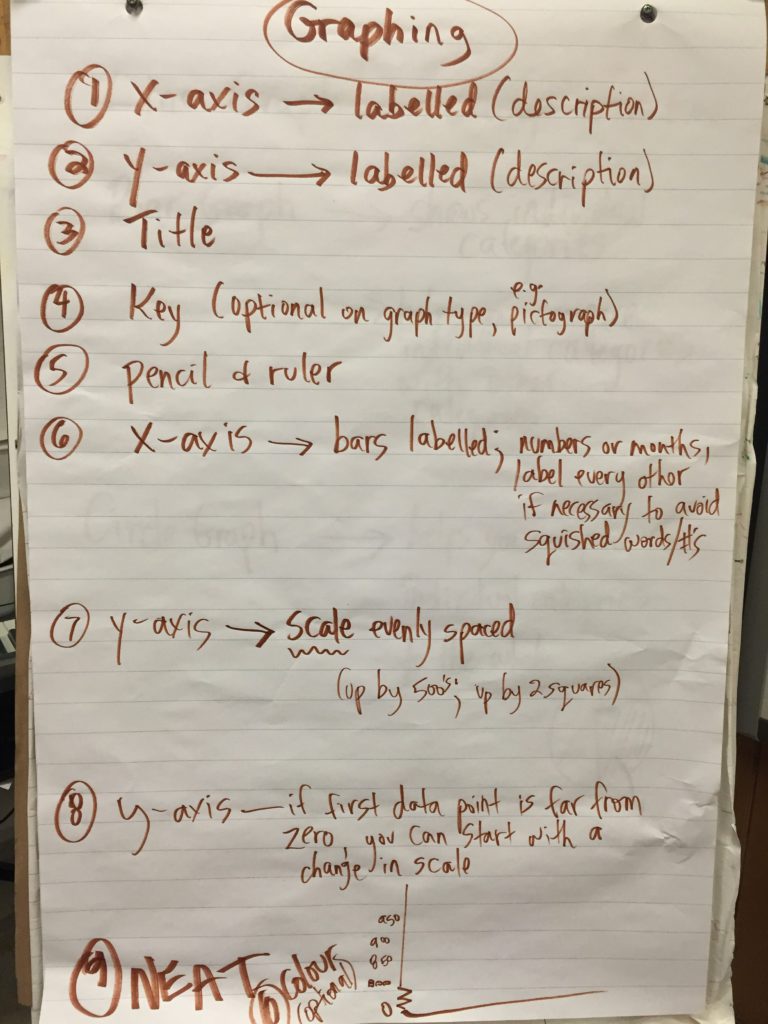 Graphing
① X-axis → labelled (description)
② y-axis → labelled (description)
③ Title
④ Key (optional on graph type, e.g. pictograph)
⑤ pencil & ruler
⑥ X-axis → bars labelled; numbers or months,
label every other
if necessary to avoid
squished words/#'s
⑦ y-axis → scale evenly spaced
(up by 500's; up by 2 squares)
⑧ y-axis — if first data point is far from
zero, you can start with a
change in scale
950
900
850
800
0
⑨ NEAT
Colours
(optional)